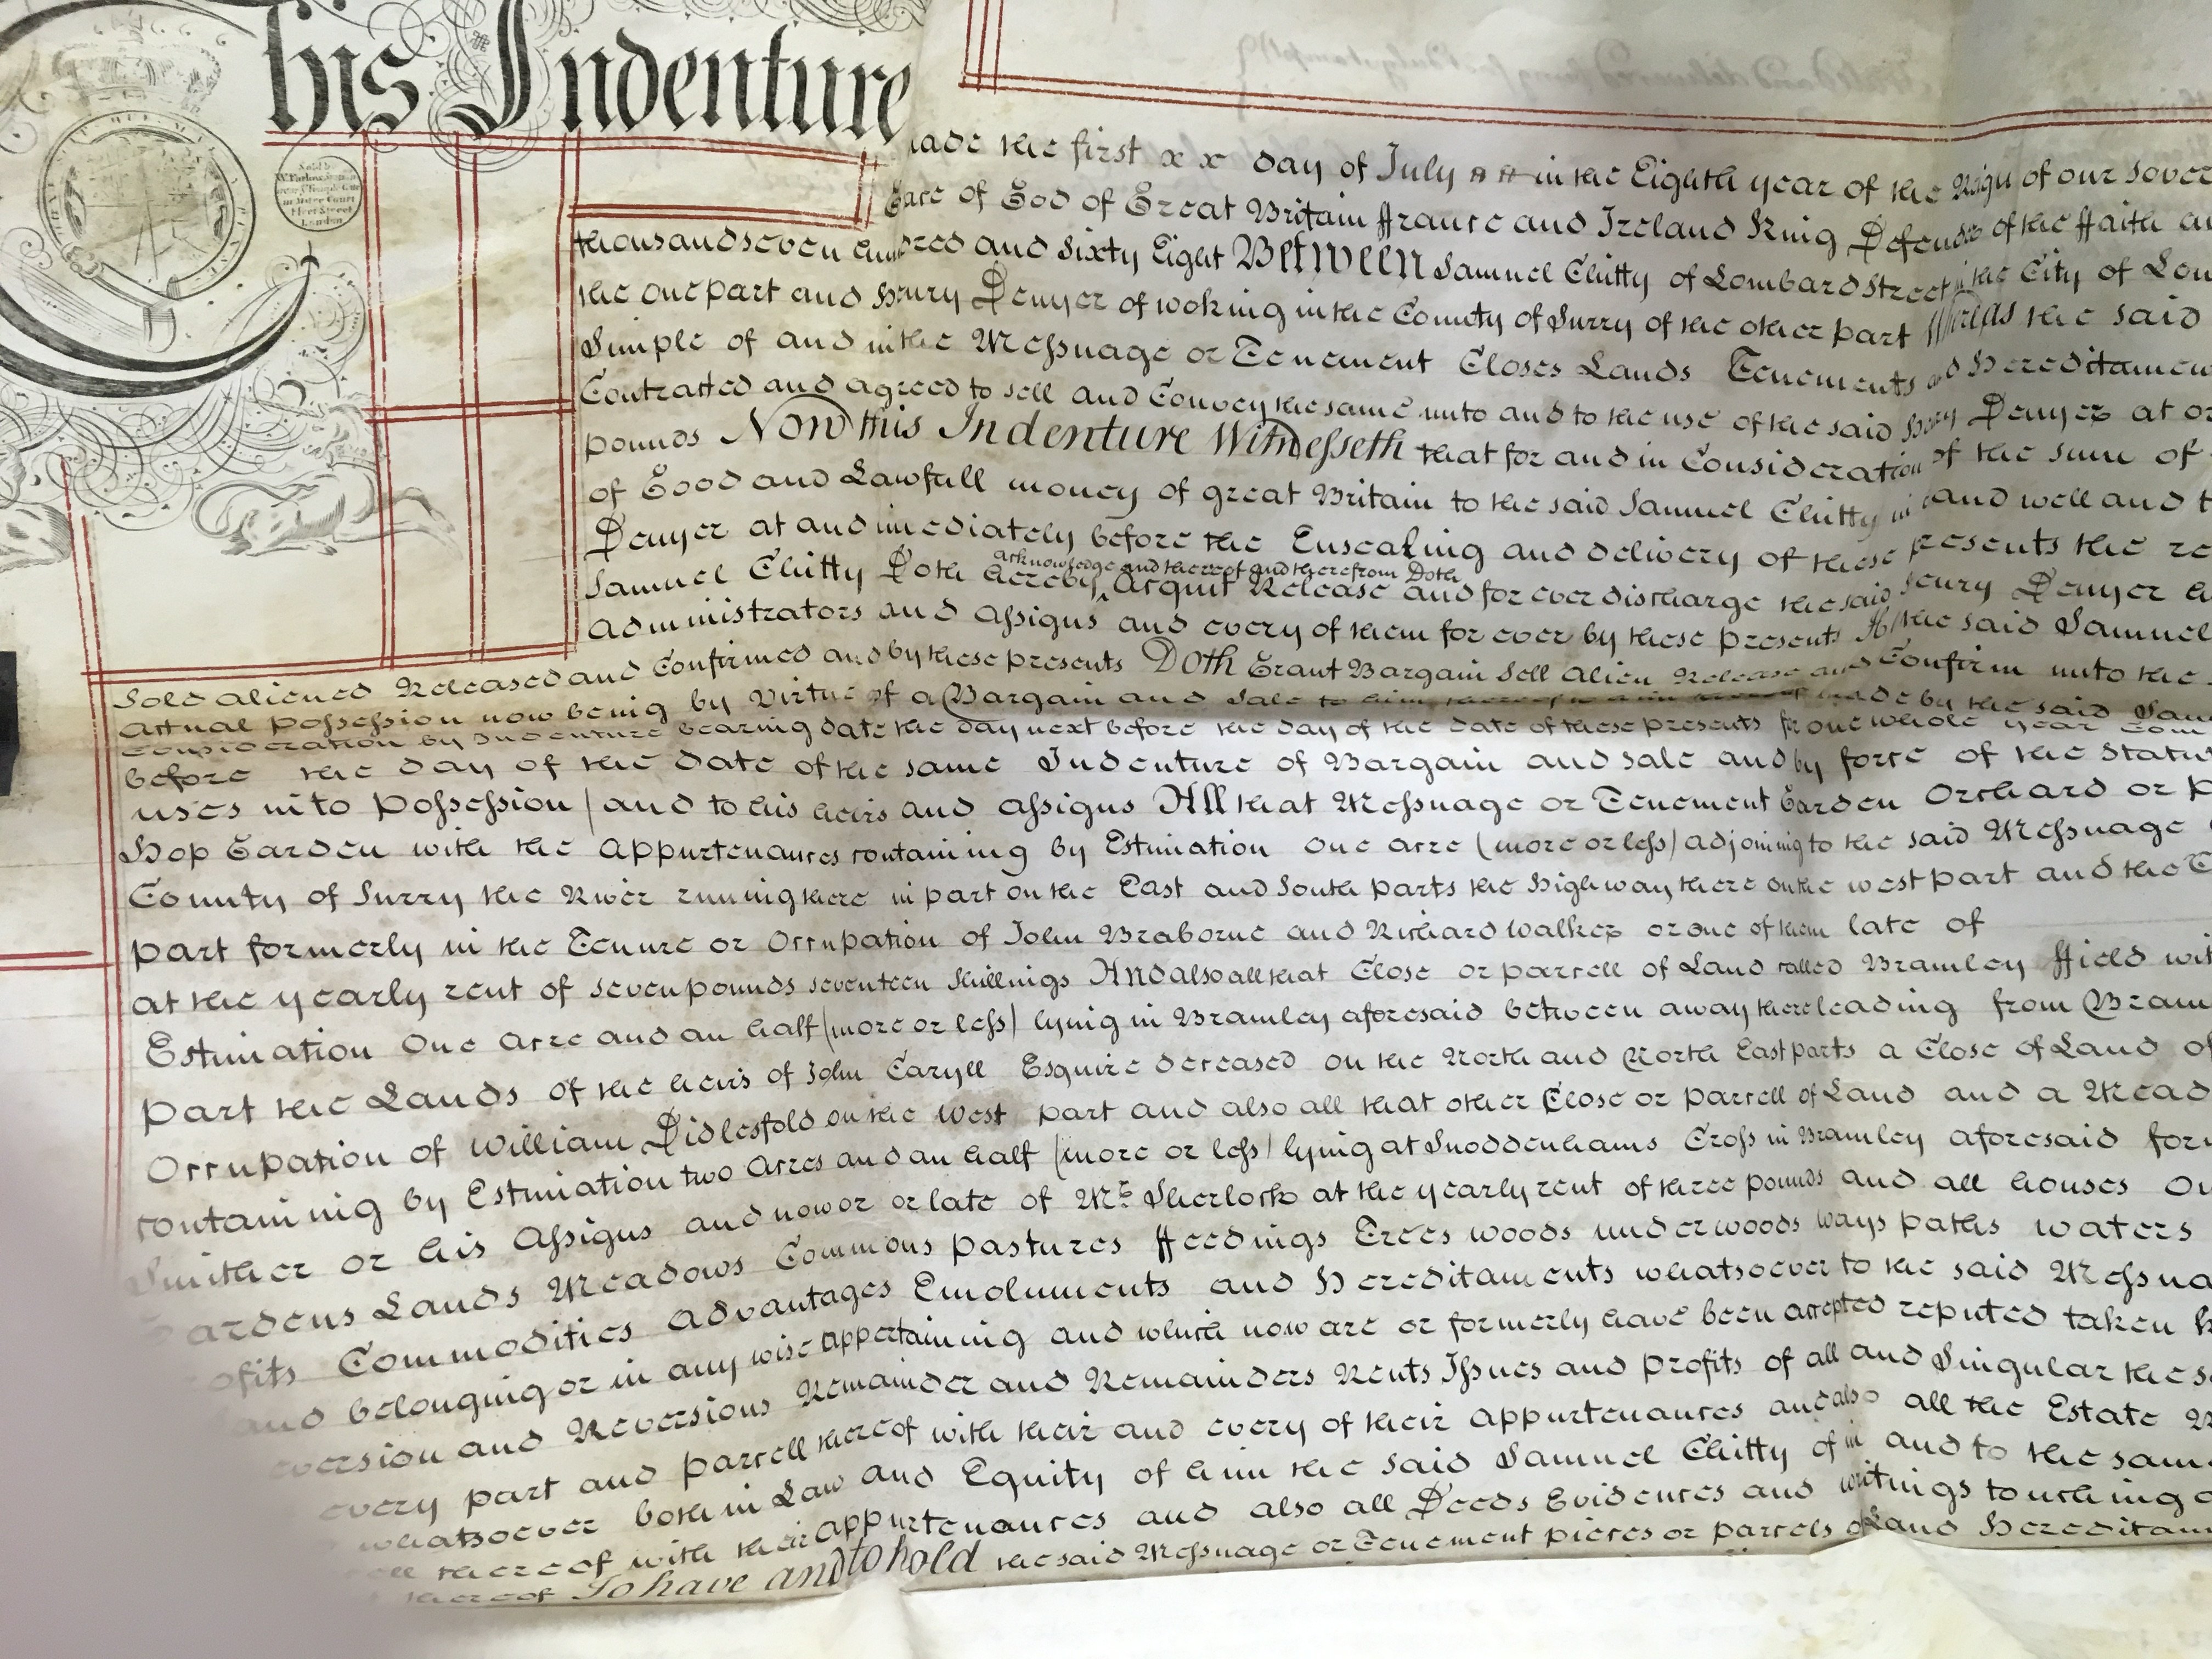 This Indenture
Sold by
W. Parlow
Inner Temple Gate
Fleet Street
London
made the first x x day of July in the Eighth year of the Reign of our sover
of God of Great Britain ffrance and Ireland King Defender of the ffaith
thousand seven hundred and Sixty Eight Between Samuel Chitty of Lombard Street in the City of Lon
the one part and Henry Denyer of woking in the County of Surry of the other part Whereas the said
Simple of and in the Messuage or Tenement Closes Lands Tenements and Hereditamen
Contracted and agreed to sell and Convey the same unto and to the use of the said Henry Denyer at or
pounds Now this Indenture Witnesseth that for and in Consideration of the sum of
of Good and Lawfull money of great Britain to the said Samuel Chitty in hand well and t
Denyer at and imediately before the Ensealing and delivery of these presents the re
acknowledge and thereof and therefrom Doth
Samuel Chitty Doth hereby ^ Acquit Release and for ever discharge the said Henry Denyer
Administrators and Assigns and every of them for ever by these presents He the said Samuel
Sold aliened Released and Confirmed and by these presents Doth Grant Bargain Sell Alien Release and Confirm unto the
Actual possession now being by Virtue of a Bargain and Sale to him made by the said Sam
Consideration by Indenture bearing date the day next before the day of the date of these presents for one whole year
before the day of the date of the same Indenture of Bargain and Sale and by force of the Statut
uses into possession) and to his heirs and assigns All that Messuage or Tenement Garden Orchard or p
Hop Garden with the Appurtenances containing by Estimation one acre (more or less) adjoining to the said Messuage
County of Surry the River running there in part on the East and South parts the Highway there on the west part and the T
part formerly in the Tenure or Occupation of John Braborne and Richard Walker or one of them late of
at the yearly rent of seven pounds seventeen shillings And also all that Close or parcell of Land called Bramley ffield wit
Estimation One Acre and an half (more or less) lying in Bramley aforesaid between a way there leading from Bram
part the Lands of the heirs of John Caryll Esquire deceased on the North and North East parts a Close of Land of
Occupation of William Didlesfold on the West part and also all that other Close or parcell of Land and a Mead
containing by Estimation two Acres and an half (more or less) lying at Snoddenhams Cross in Bramley aforesaid for
Smither or his Assigns and now or late of Mr. Sherlock at the yearly rent of three pounds and all houses Ou
Gardens Lands Meadows Commons pastures ffeedings Trees woods underwoods ways paths waters
ofits Commodities Advantages Emoluments and Hereditaments whatsoever to the said Messua
and belonging or in any wise appertaining and which now are or formerly have been accepted reputed taken k
eversion and Reversions Remainder and Remainders Rents Issues and profits of all and Singular the s
every part and parcell thereof with their and every of their appurtenances and also all the Estate
whatsoever both in Law and Equity of him the said Samuel Chitty of in and to the sam
thereof with their appurtenances and also all Deeds Evidences and writings touching
thereof To have and to hold the said Messuage or Tenement pieces or parcels of Land Hereditam